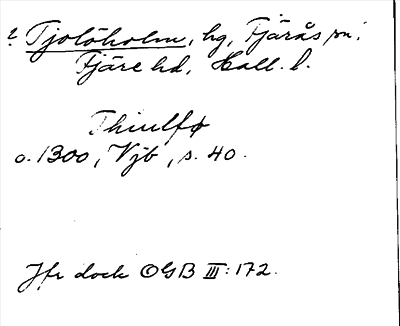 ? Tjolöholm, hg, Fjärås sn,
Fjäre hd, Hall. l.
Thiulfø
o. 1300, Vjb, s. 40.
Jfr dock OGB III: 172.